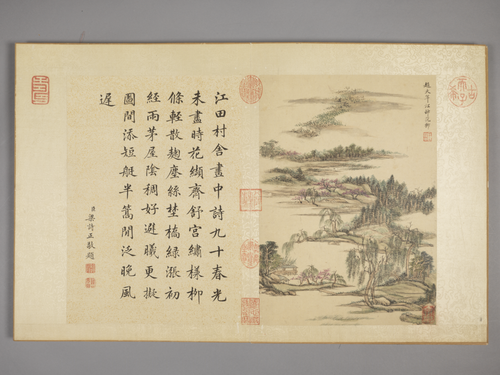 趙大年江邨花柳
江田村舍畫中詩九十春光
未盡時花纈齊舒宮繡樣柳
條輕散麴塵絲埜橋綠漲初
經雨茅屋陰稠好避曦更擬
圖間添短艇半篙閒泛晚風
遲
臣梁詩正敬題